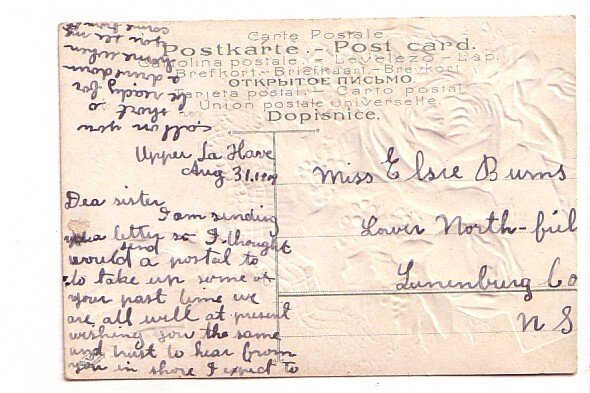 Carte Postale
Postkarte. - Post card.
Cartolina postale. - Levelező-Lap.
Brefkort.- Briefkaart - Brevkort
ОТКРЫТОЕ ПИСЬМО.
Tarjeta postal. - Carto postal
Union postale universelle
Dopisnice.
Upper La Have
Aug 31, 1909
Dea sister
I am sending
you a letter so I thought
would send a postal to
to take up some of
your past time we
are all well at present
wishing you the same
and trust to hear from
you in shore I expect to
call on you
in short so
be ready for
a drive down
home when
you see me
come from
Miss Elsie Burns
Lower North-fiel
Lunenburg Co
N S